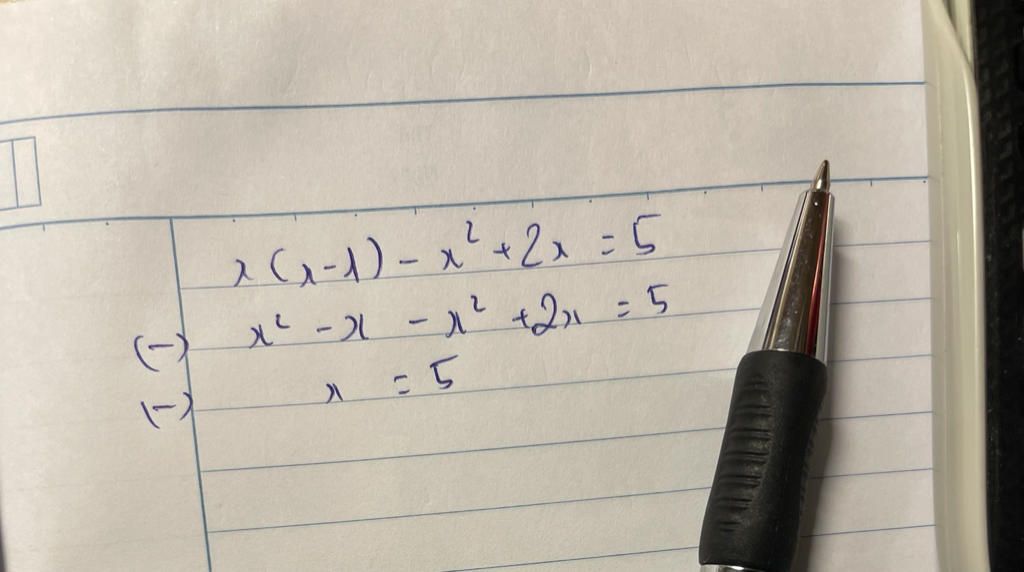 x(x-1) - x² + 2x = 5
(-) x² - x - x² + 2x = 5
(-) x = 5